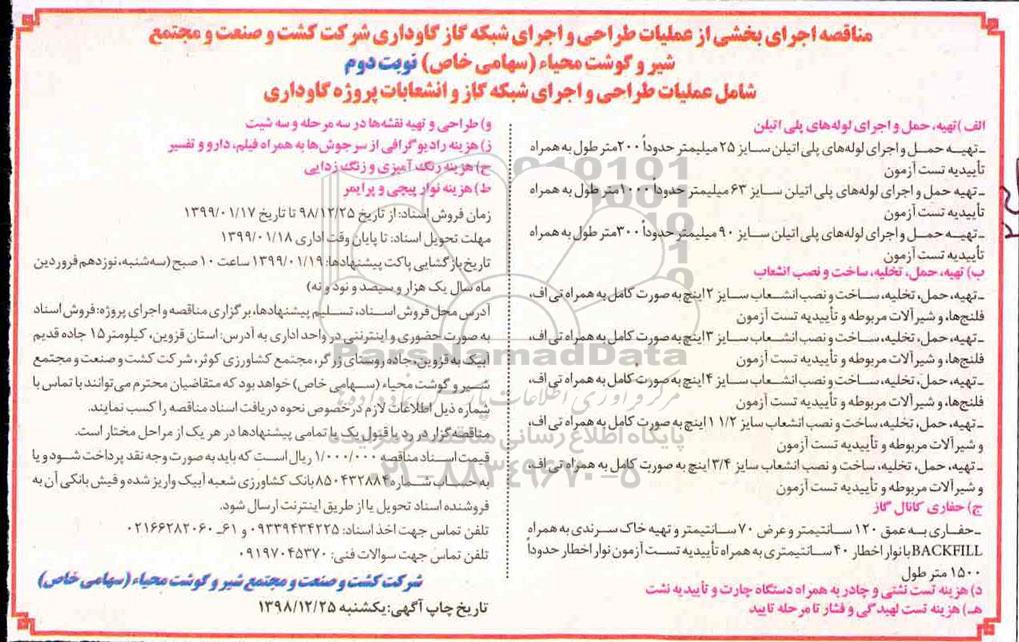 مناقصه اجرای بخشی از عملیات طراحی و اجرای شبکه گاز گاوداری شرکت کشت و صنعت و مجتمع
شیر و گوشت محیاء (سهامی خاص) نوبت دوم
شامل عملیات طراحی و اجرای شبکه گاز و انشعابات پروژه گاوداری
الف) تهیه، حمل و اجرای لوله‌های پلی اتیلن
ـ تهیه حمل و اجرای لوله‌های پلی اتیلن سایز ۲۵ میلیمتر حدوداً ۲۰۰ متر طول به همراه
تأییدیه تست آزمون
ـ تهیه حمل و اجرای لوله‌های پلی اتیلن سایز ۶۳ میلیمتر حدوداً ۱۰۰۰ متر طول به همراه
تأییدیه تست آزمون
ـ تهیه حمل و اجرای لوله‌های پلی اتیلن سایز ۹۰ میلیمتر حدوداً ۳۰۰متر طول به همراه
تأییدیه تست آزمون
ب) تهیه، حمل، تخلیه، ساخت و نصب انشعاب
ـ تهیه، حمل، تخلیه، ساخت و نصب انشعاب سایز ۲ اینچ به صورت کامل به همراه تی اف،
فلنج‌ها، و شیرآلات مربوطه و تأییدیه تست آزمون
ـ تهیه، حمل، تخلیه، ساخت و نصب انشعاب سایز ۳ اینچ به صورت کامل به همراه تی اف،
فلنج‌ها، و شیرآلات مربوطه و تأییدیه تست آزمون
ـ تهیه، حمل، تخلیه، ساخت و نصب انشعاب سایز ۴ اینچ به صورت کامل به همراه تی اف،
فلنج‌ها، و شیرآلات مربوطه و تأییدیه تست آزمون
ـ تهیه، حمل، تخلیه، ساخت و نصب انشعاب سایز ۱/۲ ۱ اینچ به صورت کامل به همراه تی اف،
و شیرآلات مربوطه و تأییدیه تست آزمون
ـ تهیه، حمل، تخلیه، ساخت و نصب انشعاب سایز ۳/۴ اینچ به صورت کامل به همراه تی اف،
و شیرآلات مربوطه و تأییدیه تست آزمون
ج) حفاری کانال گاز
ـ حفاری به عمق ۱۲۰ سانتیمتر و عرض ۷۰ سانتیمتر و تهیه خاک سرندی به همراه
BACKFILL با نوار اخطار ۴۰ سانتیمتری به همراه تأییدیه تست آزمون نوار اخطار حدوداً
۱۵۰۰ متر طول
د) هزینه تست نشتی و چادر به همراه دستگاه چارت و تأییدیه نشت
هـ) هزینه تست لهیدگی و فشار تا مرحله تایید
و) طراحی و تهیه نقشه‌ها در سه مرحله و سه شیت
ز) هزینه رادیوگرافی از سرجوش‌ها به همراه فیلم، دارو و تفسیر
ح) هزینه رنگ آمیزی و زنگ زدایی
ط) هزینه نوار پیچی و پرایمر
زمان فروش اسناد: از تاریخ ۹۸/۱۲/۲۵ تا تاریخ ۱۳۹۹/۰۱/۱۷
مهلت تحویل اسناد: تا پایان وقت اداری ۱۳۹۹/۰۱/۱۸
تاریخ بازگشایی پاکت پیشنهادها: ۱۳۹۹/۰۱/۱۹ ساعت ۱۰ صبح (سه‌شنبه، نوزدهم فروردین
ماه سال یک هزار و سیصد و نود و نه)
آدرس محل فروش اسناد، تسلیم پیشنهادها، برگزاری مناقصه و اجرای پروژه: فروش اسناد
به صورت حضوری و اینترنتی در واحد اداری به آدرس: استان قزوین، کیلومتر ۱۵ جاده قدیم
آبیک به قزوین، جاده روستای زرگر، مجتمع کشاورزی کوثر، شرکت کشت و صنعت و مجتمع
شیر و گوشت محیاء (سهامی خاص) خواهد بود که متقاضیان محترم می‌توانند با تماس با
شماره ذیل اطلاعات لازم درخصوص نحوه دریافت اسناد مناقصه را کسب نمایند.
مناقصه‌گزار در رد یا قبول یک یا تمامی پیشنهادها در هر یک از مراحل مختار است.
قیمت اسناد مناقصه ۱/۰۰۰/۰۰۰ ریال است که باید به صورت وجه نقد پرداخت شود و یا
به حساب شماره ۸۵۰۴۳۲۸۸۴ بانک کشاورزی شعبه آبیک واریز شده و فیش بانکی آن به
فروشنده اسناد تحویل یا از طریق اینترنت ارسال شود.
تلفن تماس جهت اخذ اسناد: ۰۹۳۳۹۴۳۴۲۲۵ و ۶۱ـ۰۲۱۶۶۲۸۲۰۶۰
تلفن تماس جهت سوالات فنی: ۰۹۱۹۷۰۴۵۳۷۰
شرکت کشت و صنعت و مجتمع شیر و گوشت محیاء (سهامی خاص)
تاریخ چاپ آگهی: یکشنبه ۱۳۹۸/۱۲/۲۵
ParsNamadData
پایگاه اطلاع رسانی مناقصه و مزایده
۰۲۱-۸۸۳۴۹۶۷۰-۵